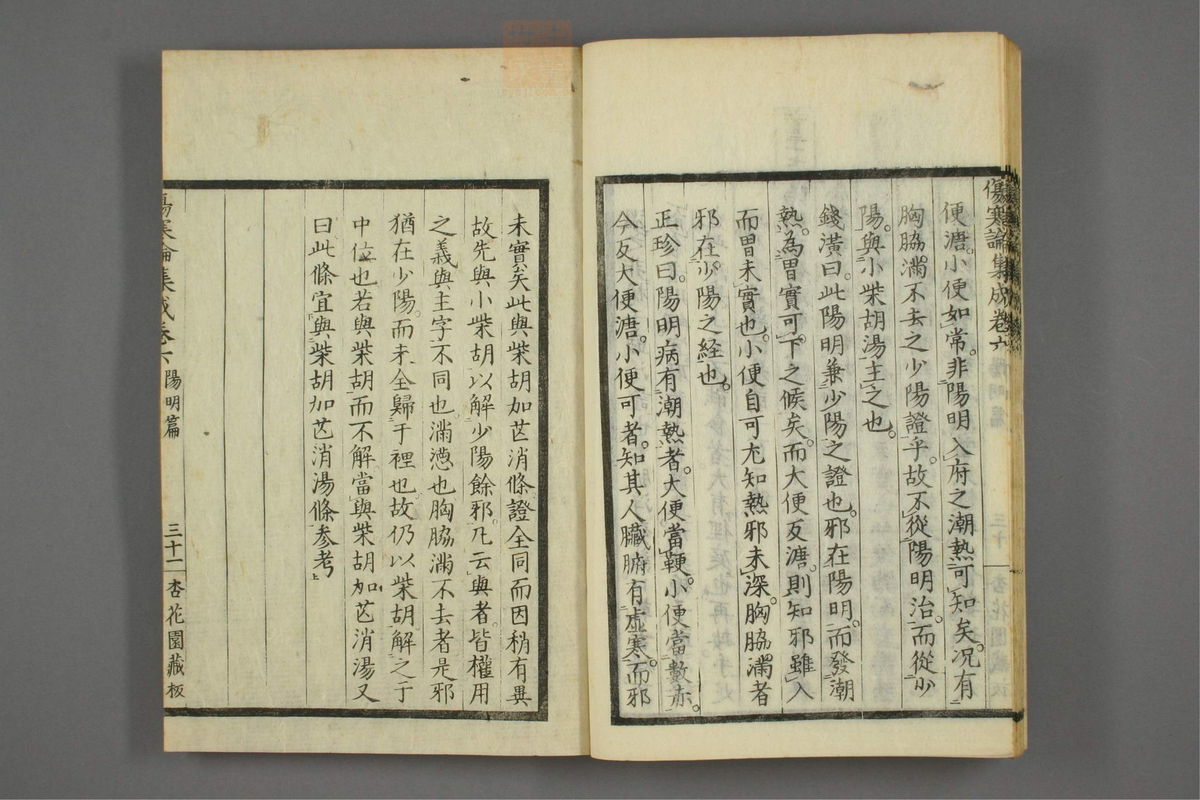 傷寒論集成卷六
便溏。小便如常。非陽明入府之潮熱可知矣。況有
胸脇滿不去之少陽證乎。故不從陽明治。而從少
陽。與小柴胡湯主之也。
錢潢曰。此陽明兼少陽之證也。邪在陽明。而發潮
熱。為胃實可下之候矣。而大便反溏。則知邪雖入
而胃未實也。小便自可。尤知熱邪未深。胸脇滿者
邪在少陽之経也。
正珍曰。陽明病有潮熱者。大便當鞕。小便當數赤。
今反大便溏。小便可者。知其人臟腑有虛寒。而邪
未實矣此與柴胡加芒消條證全同而因稍有異
故先與小柴胡以解少陽餘邪。凡云與者。皆權用
之義與主字不同也。滿懣也胸脇滿不去者是邪
猶在少陽。而未全歸于裡也。故仍以柴胡解之于
中位也若與柴胡而不解當與柴胡加芒消湯又
曰此條宜與柴胡加芒消湯條参考
傷寒論集成卷六 陽明篇 三十一 杏花園藏板